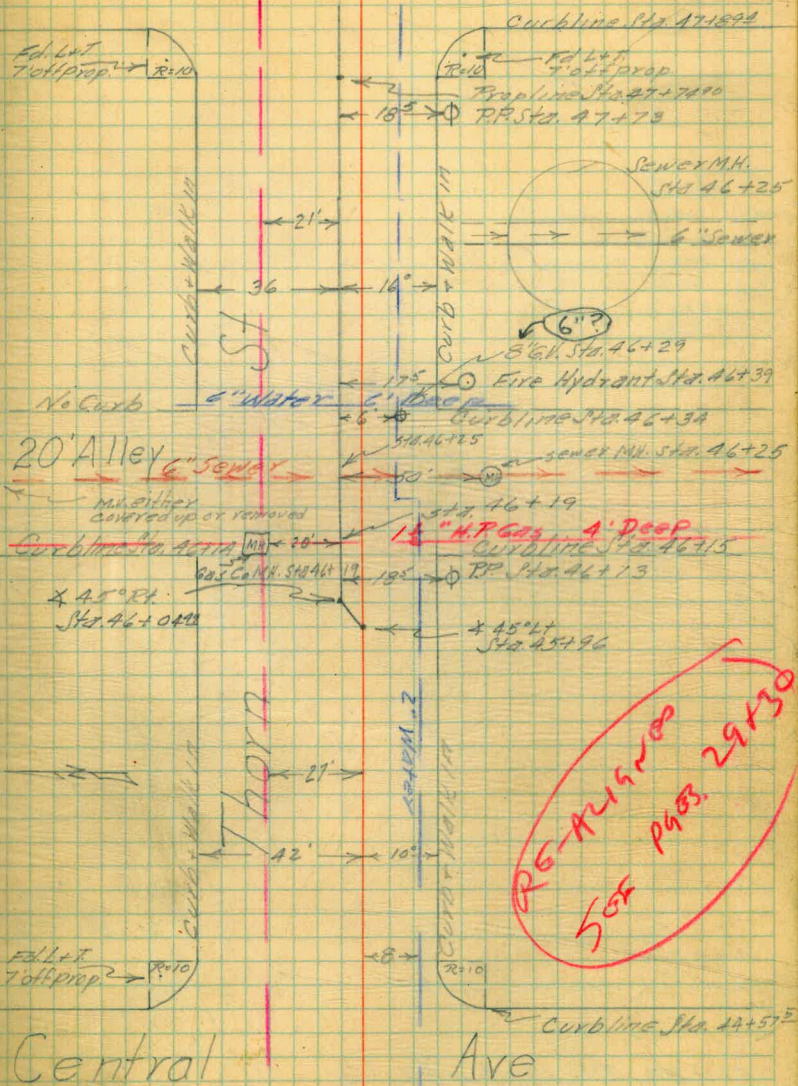 Curbline Sta. 47+89⁴
Fd. L+T.
7' off prop.
R=10
R=10
Fd. L+T.
7' off prop
Prop line Sta. 47+74⁹⁰
18⁵
P.P. Sta. 47+73
Sewer M.H.
Sta 46+25
Curb + Walk in
Curb + Walk in
21'
6" Sewer
36
16⁰
St
6"?
8" G.V. Sta. 46+29
17⁵
Fire Hydrant Sta. 46+39
No Curb
6" Water 6' Deep
6
Curbline Sta. 46+34
20' Alley
6" Sewer
Sta. 46+25
30'
MH
Sewer M.H. Sta. 46+25
M.H. either
covered up or removed
Sta. 46+19
" H.P. Gas 4' Deep
Curbline Sta. 46+14
MH
20'
Curbline Sta. 46+15
Gas Co M.H. Sta 46+19
18⁵
P.P. Sta. 46+13
∡ 45° Rt.
Sta. 46+04⁹²
∡ 45° Lt
Sta. 45+96
Thorn
2" Water
RE-ALIGNED
SEE PGES. 29+30
27'
Curb + Walk in
Curb + Walk in
42'
10⁰
8
Fd. L+T.
7' off prop
R=10
R=10
Curbline Sta. 44+57⁵
Central Ave